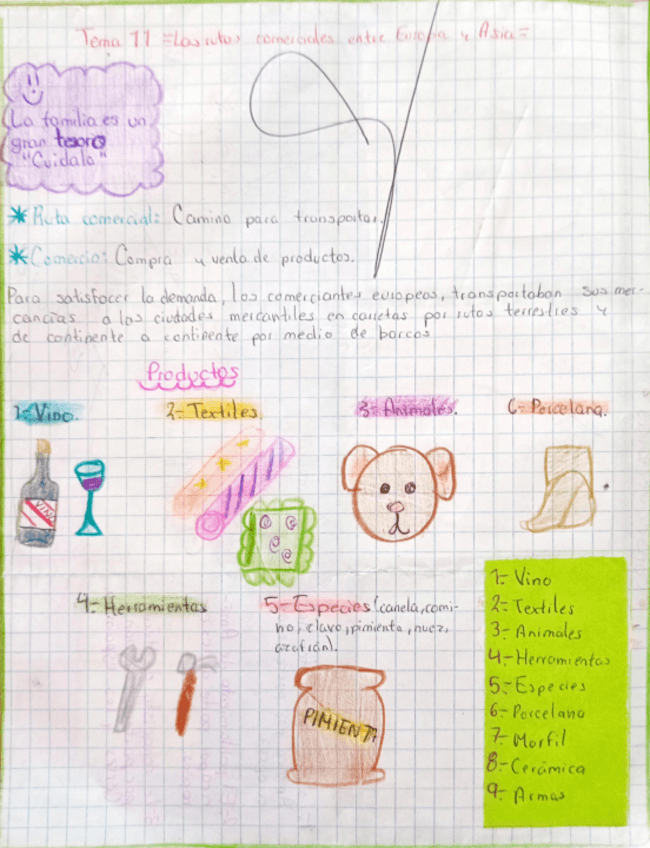 Tema 11 =Las rutas comerciales entre Europa y Asia=
La familia es un
gran tesoro
"Cuidala"
*Ruta comercial: Camino para transportar.
*Comercio: Compra y venta de productos.
Para satisfacer la demanda, los comerciantes europeos, transportaban sus mer-
cancías a las ciudades mercantiles en carretas por rutas terrestres y
de continente a continente por medio de barcos
Productos
1-Vino.
2-Textiles.
3-Animales.
6-Porcelana.
VINO
4-Herramientas
5-Especies (canela, comi-
no, clavo, pimienta, nuez,
azafrán).
PIMIENTA
1- Vino
2- Textiles
3- Animales
4- Herramientas
5- Especies
6- Porcelana
7- Marfil
8- Cerámica
9- Armas